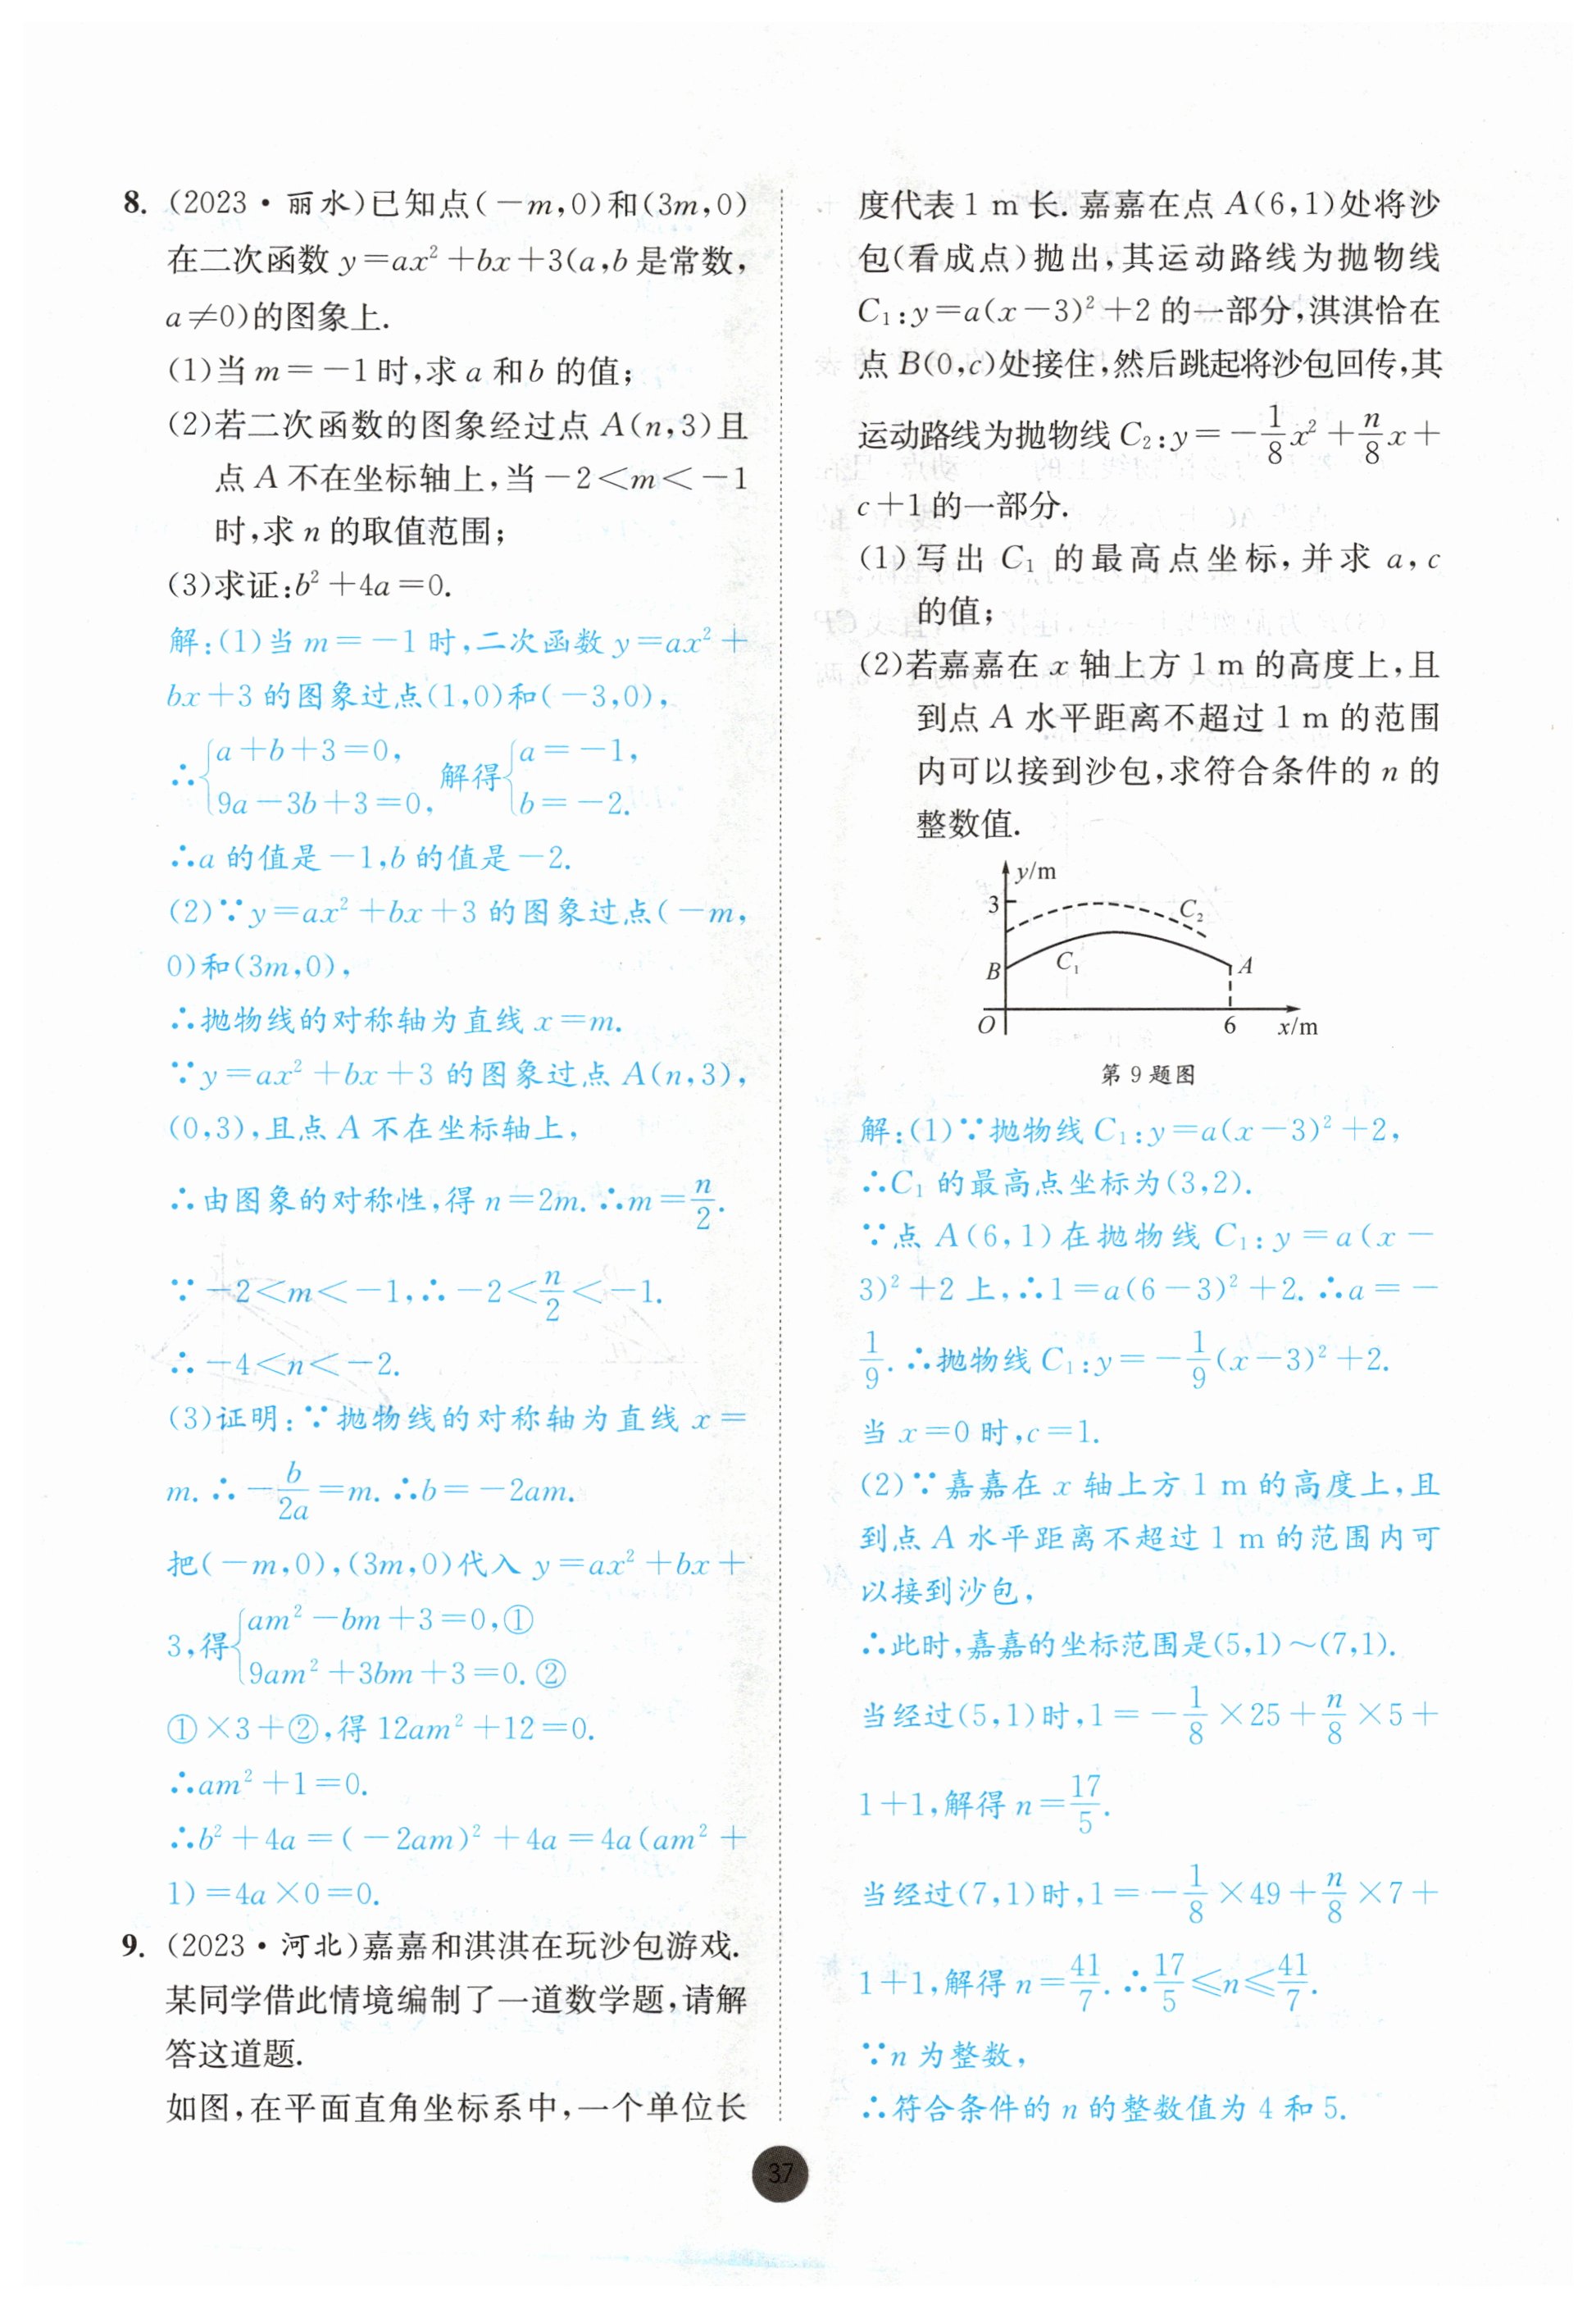 8. (2023·丽水)已知点(-m,0)和(3m,0)
在二次函数 y=ax²+bx+3(a,b 是常数,
a≠0)的图象上.
(1)当 m=-1 时,求 a 和 b 的值;
(2)若二次函数的图象经过点 A(n,3)且
点 A 不在坐标轴上,当-2<m<-1
时,求 n 的取值范围;
(3)求证:b²+4a=0.
解:(1)当 m=-1 时,二次函数 y=ax²+
bx+3 的图象过点(1,0)和(-3,0),
∴{a+b+3=0, 9a-3b+3=0, 解得{a=-1, b=-2.
∴a 的值是-1,b 的值是-2.
(2)∵y=ax²+bx+3 的图象过点(-m,
0)和(3m,0),
∴抛物线的对称轴为直线 x=m.
∵y=ax²+bx+3 的图象过点 A(n,3),
(0,3),且点 A 不在坐标轴上,
∴由图象的对称性,得 n=2m.∴m=n/2.
∵-2<m<-1,∴-2<n/2<-1.
∴-4<n<-2.
(3)证明:∵抛物线的对称轴为直线 x=
m.∴-b/2a=m.∴b=-2am.
把(-m,0),(3m,0)代入 y=ax²+bx+
3,得{am²-bm+3=0,① 9am²+3bm+3=0.②
①×3+②,得 12am²+12=0.
∴am²+1=0.
∴b²+4a=(-2am)²+4a=4a(am²+
1)=4a×0=0.
9. (2023·河北)嘉嘉和淇淇在玩沙包游戏.
某同学借此情境编制了一道数学题,请解
答这道题.
如图,在平面直角坐标系中,一个单位长
度代表 1 m 长.嘉嘉在点 A(6,1)处将沙
包(看成点)抛出,其运动路线为抛物线
C₁:y=a(x-3)²+2 的一部分,淇淇恰在
点 B(0,c)处接住,然后跳起将沙包回传,其
运动路线为抛物线 C₂:y=-1/8x²+n/8x+
c+1 的一部分.
(1)写出 C₁ 的最高点坐标,并求 a,c
的值;
(2)若嘉嘉在 x 轴上方 1 m 的高度上,且
到点 A 水平距离不超过 1 m 的范围
内可以接到沙包,求符合条件的 n 的
整数值.
y/m
3
C₂
B
C₁
A
O
6
x/m
第 9 题图
解:(1)∵抛物线 C₁:y=a(x-3)²+2,
∴C₁ 的最高点坐标为(3,2).
∵点 A(6,1)在抛物线 C₁:y=a(x-
3)²+2 上,∴1=a(6-3)²+2.∴a=-
1/9.∴抛物线 C₁:y=-1/9(x-3)²+2.
当 x=0 时,c=1.
(2)∵嘉嘉在 x 轴上方 1 m 的高度上,且
到点 A 水平距离不超过 1 m 的范围内可
以接到沙包,
∴此时,嘉嘉的坐标范围是(5,1)~(7,1).
当经过(5,1)时,1=-1/8×25+n/8×5+
1+1,解得 n=17/5.
当经过(7,1)时,1=-1/8×49+n/8×7+
1+1,解得 n=41/7.∴17/5≤n≤41/7.
∵n 为整数,
∴符合条件的 n 的整数值为 4 和 5.
37